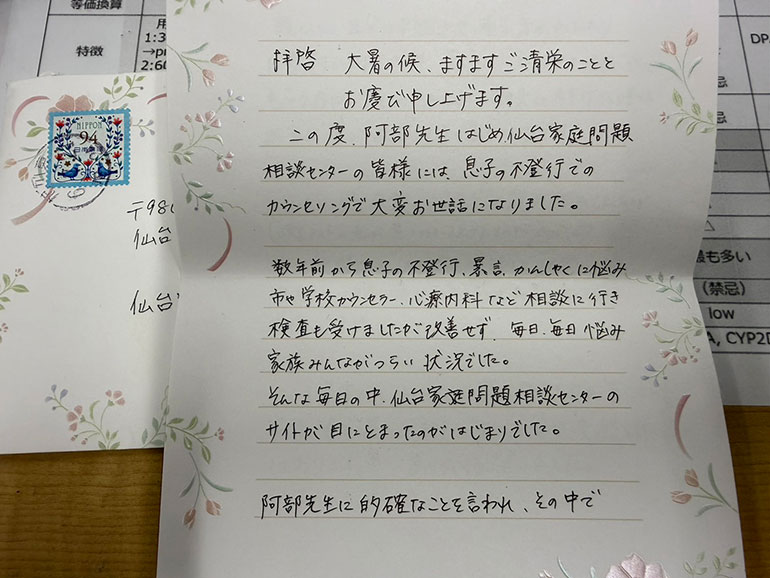 等価換算
特徴
拝啓　大暑の候、ますますご清栄のことと
お慶び申し上げます。
この度、阿部先生はじめ仙台家庭問題
相談センターの皆様には、息子の不登行での
カウンセリングで大変お世話になりました。
数年前から息子の不登行、暴言、かんしゃくに悩み
市や学校カウンセラー、心療内科など相談に行き
検査も受けましたが改善せず、毎日、毎日悩み
家族みんながつらい状況でした。
そんな毎日の中、仙台家庭問題相談センターの
サイトが目にとまったのがはじまりでした。
阿部先生に的確なことを言われ、その中で
NIPPON
94
日本郵便
〒980
仙台
仙台
も多い
(禁忌)
low
A, CYP2D